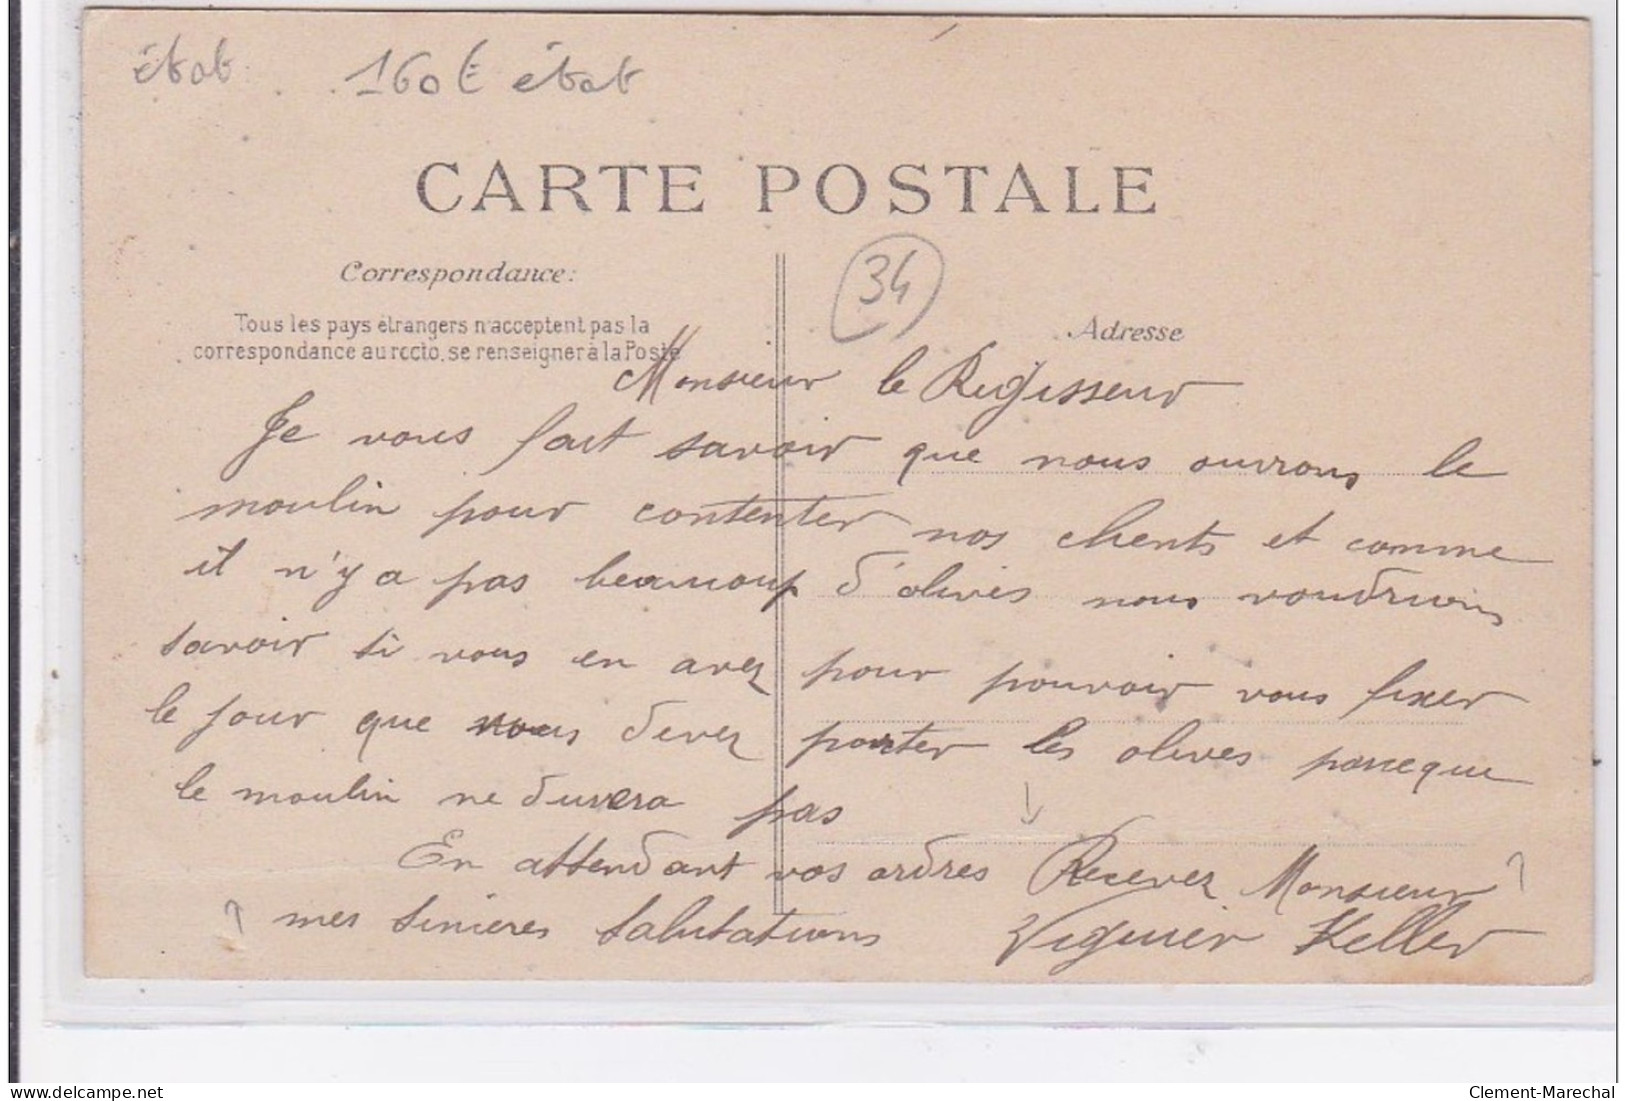 état 160€ état
CARTE POSTALE
34
Correspondance:
Tous les pays étrangers n'acceptent pas la
correspondance au recto, se renseigner à la Poste
Adresse
Monsieur le Régisseur
Je vous fait savoir que nous ouvrons le
moulin pour contenter nos clients et comme
il n'y a pas beaucoup d'olives nous voudrions
savoir si vous en avez pour pouvoir vous fixer
le jour que vous devez porter les olives parceque
le moulin ne durera pas
En attendant vos ordres Recevez Monsieur
mes sinières salutations Viguier Keller
delcampe.net
Clement-Marechal